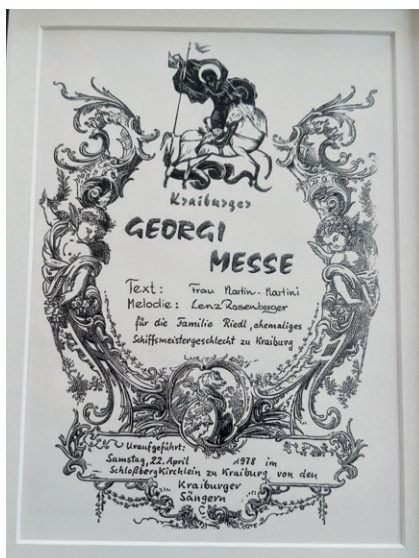 Kraiburger
GEORGI
MESSE
Text: Frau Martin-Martini
Melodie: Lenz Rosenberger
für die Familie Riedl, ehemaliges
Schiffsmeistergeschlecht zu Kraiburg
Uraufgeführt:
Samstag, 22. April 1978 im
Schloßbergkirchlein zu Kraiburg von den
Kraiburger
Sängern